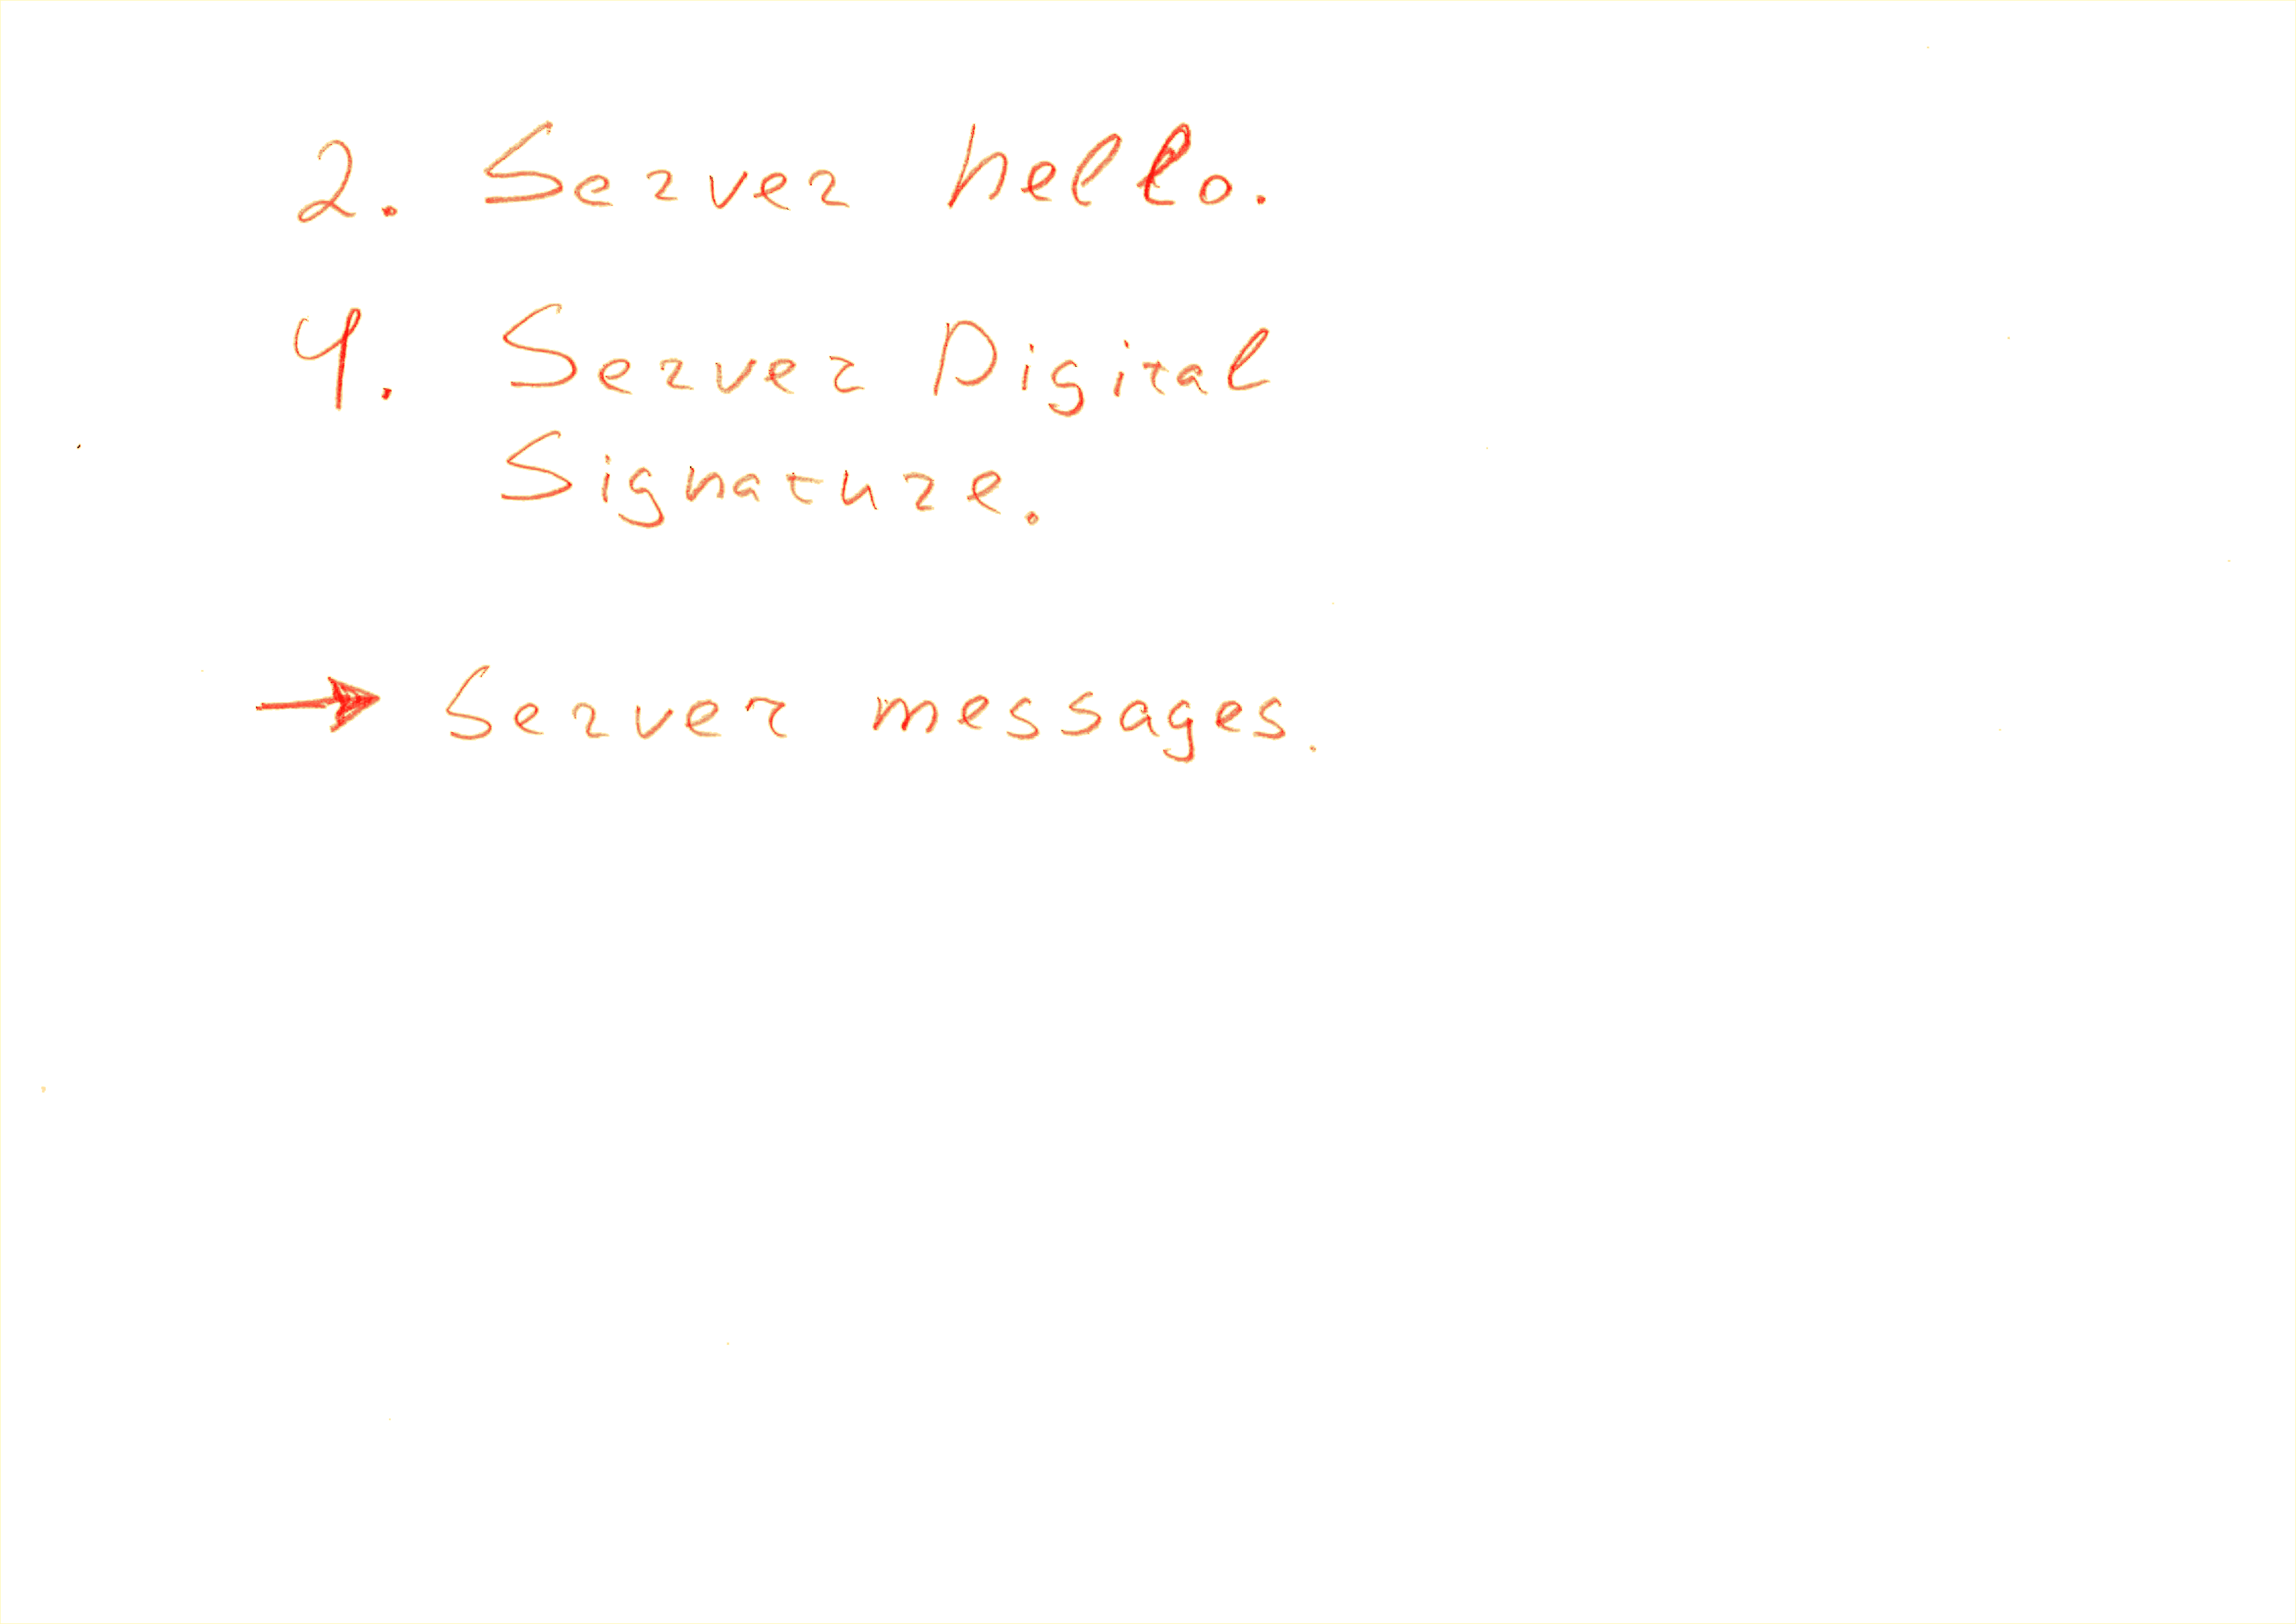 2. Server hello.
4. Server Digital
Signature.
→ Server messages.